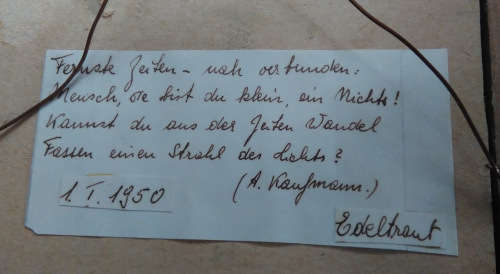 Fernste Zeiten – nah verbunden:
Mensch, wie bist du klein, ein Nichts!
Kannst du aus der Zeiten Wandel
Fassen einen Strahl des Lichts?
1. I. 1950
(A. Kaufmann.)
Edeltraut